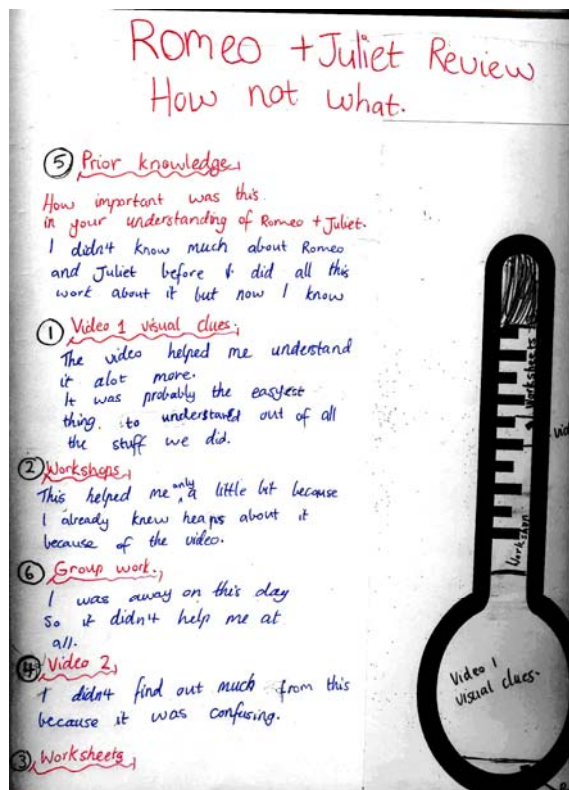 Romeo + Juliet Review
How not what.
⑤ Prior knowledge
How important was this
in your understanding of Romeo + Juliet.
I didn't know much about Romeo
and Juliet before I did all this
work about it but now I know
① Video 1 visual clues.
The video helped me understand
it alot more.
It was probably the easyest
thing to understand out of all
the stuff we did.
② Workshops
This helped me only a little bit because
I already knew heaps about it
because of the video.
⑥ Group work.
I was away on this day
So it didn't help me at
all.
④ Video 2
I didn't find out much from this
because it was confusing.
③ Worksheets
Worksheets
Workshop
Video 1
visual clues.